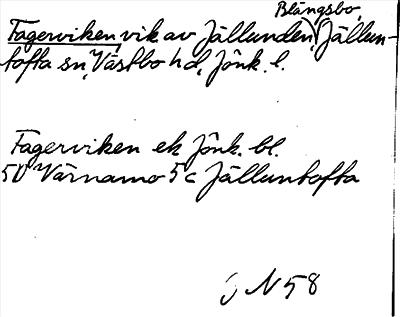 Blångsbo,
Fagerviken, vik av Jällunden, Jällun-
tofta sn, Västbo hd, Jönk. l.
Fagerviken ek Jönk. bl.
5D Värnamo 5c Jälluntofta
N 58